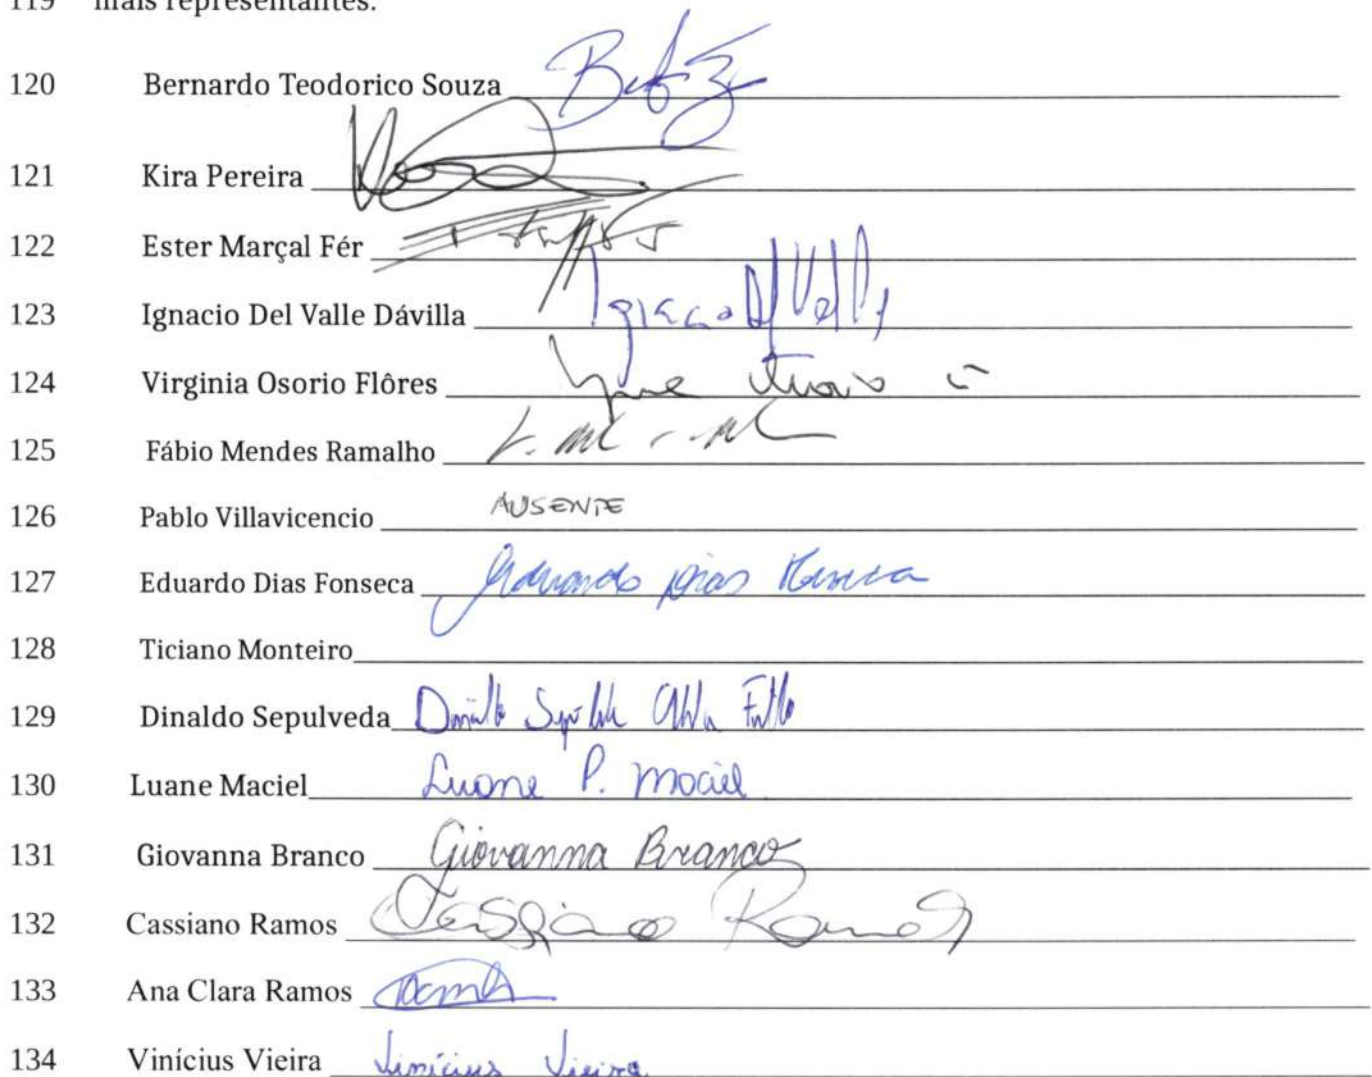 119 mais representantes.
120 Bernardo Teodorico Souza
121 Kira Pereira
122 Ester Marçal Fér
123 Ignacio Del Valle Dávilla
124 Virginia Osorio Flôres
125 Fábio Mendes Ramalho
126 Pablo Villavicencio AUSENTE
127 Eduardo Dias Fonseca Eduardo Dias Fonseca
128 Ticiano Monteiro
129 Dinaldo Sepulveda
130 Luane Maciel Luane P. Maciel
131 Giovanna Branco Giovanna Branco
132 Cassiano Ramos Cassiano Ramos
133 Ana Clara Ramos
134 Vinícius Vieira Vinícius Vieira